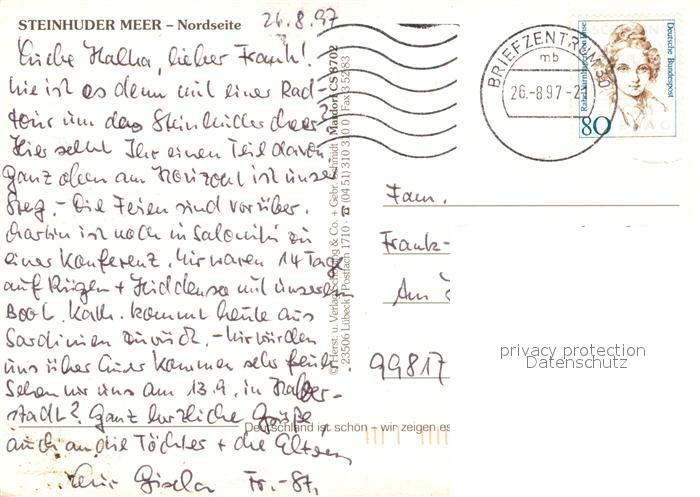 STEINHUDER MEER – Nordseite
26.8.97
Liebe Halka, lieber Frank!
wie ist es denn mit einer Rad-
tour um das Steinhuder Meer?
Hier seht Ihr einen Teil davon.
Ganz oben am Horizont ist unser
Steg. - Die Ferien sind vorüber.
Martin ist noch in Saloniki zu
einer Konferenz. Wir waren 14 Tage
auf Rügen + Hiddensee mit unserem
Boot. Kath. kommt heute aus
Sardinien zurück. - Wir würden
uns über Euer Kommen sehr freuen.
Sehen wir uns am 13.9. in Halber-
stadt? Ganz herzliche Grüße,
auch an die Töchter + die Eltern
Eure Gisela Fr.-St.
© Herst. u. Verlag Schöning & Co. + Gebr. Schmidt Mardorf CS 8702
23506 Lübeck, Postfach 1710 · ☎ (04 51) 310 310 0 Fax 3 52 83
Deutschland ist schön – wir zeigen es
BRIEFZENTRUM 30
mb
26.-8.97-21
Rahel Varnhagen von Ense
Deutsche Bundespost
80
Fam.
Frank-
Am
99817
privacy protection
Datenschutz